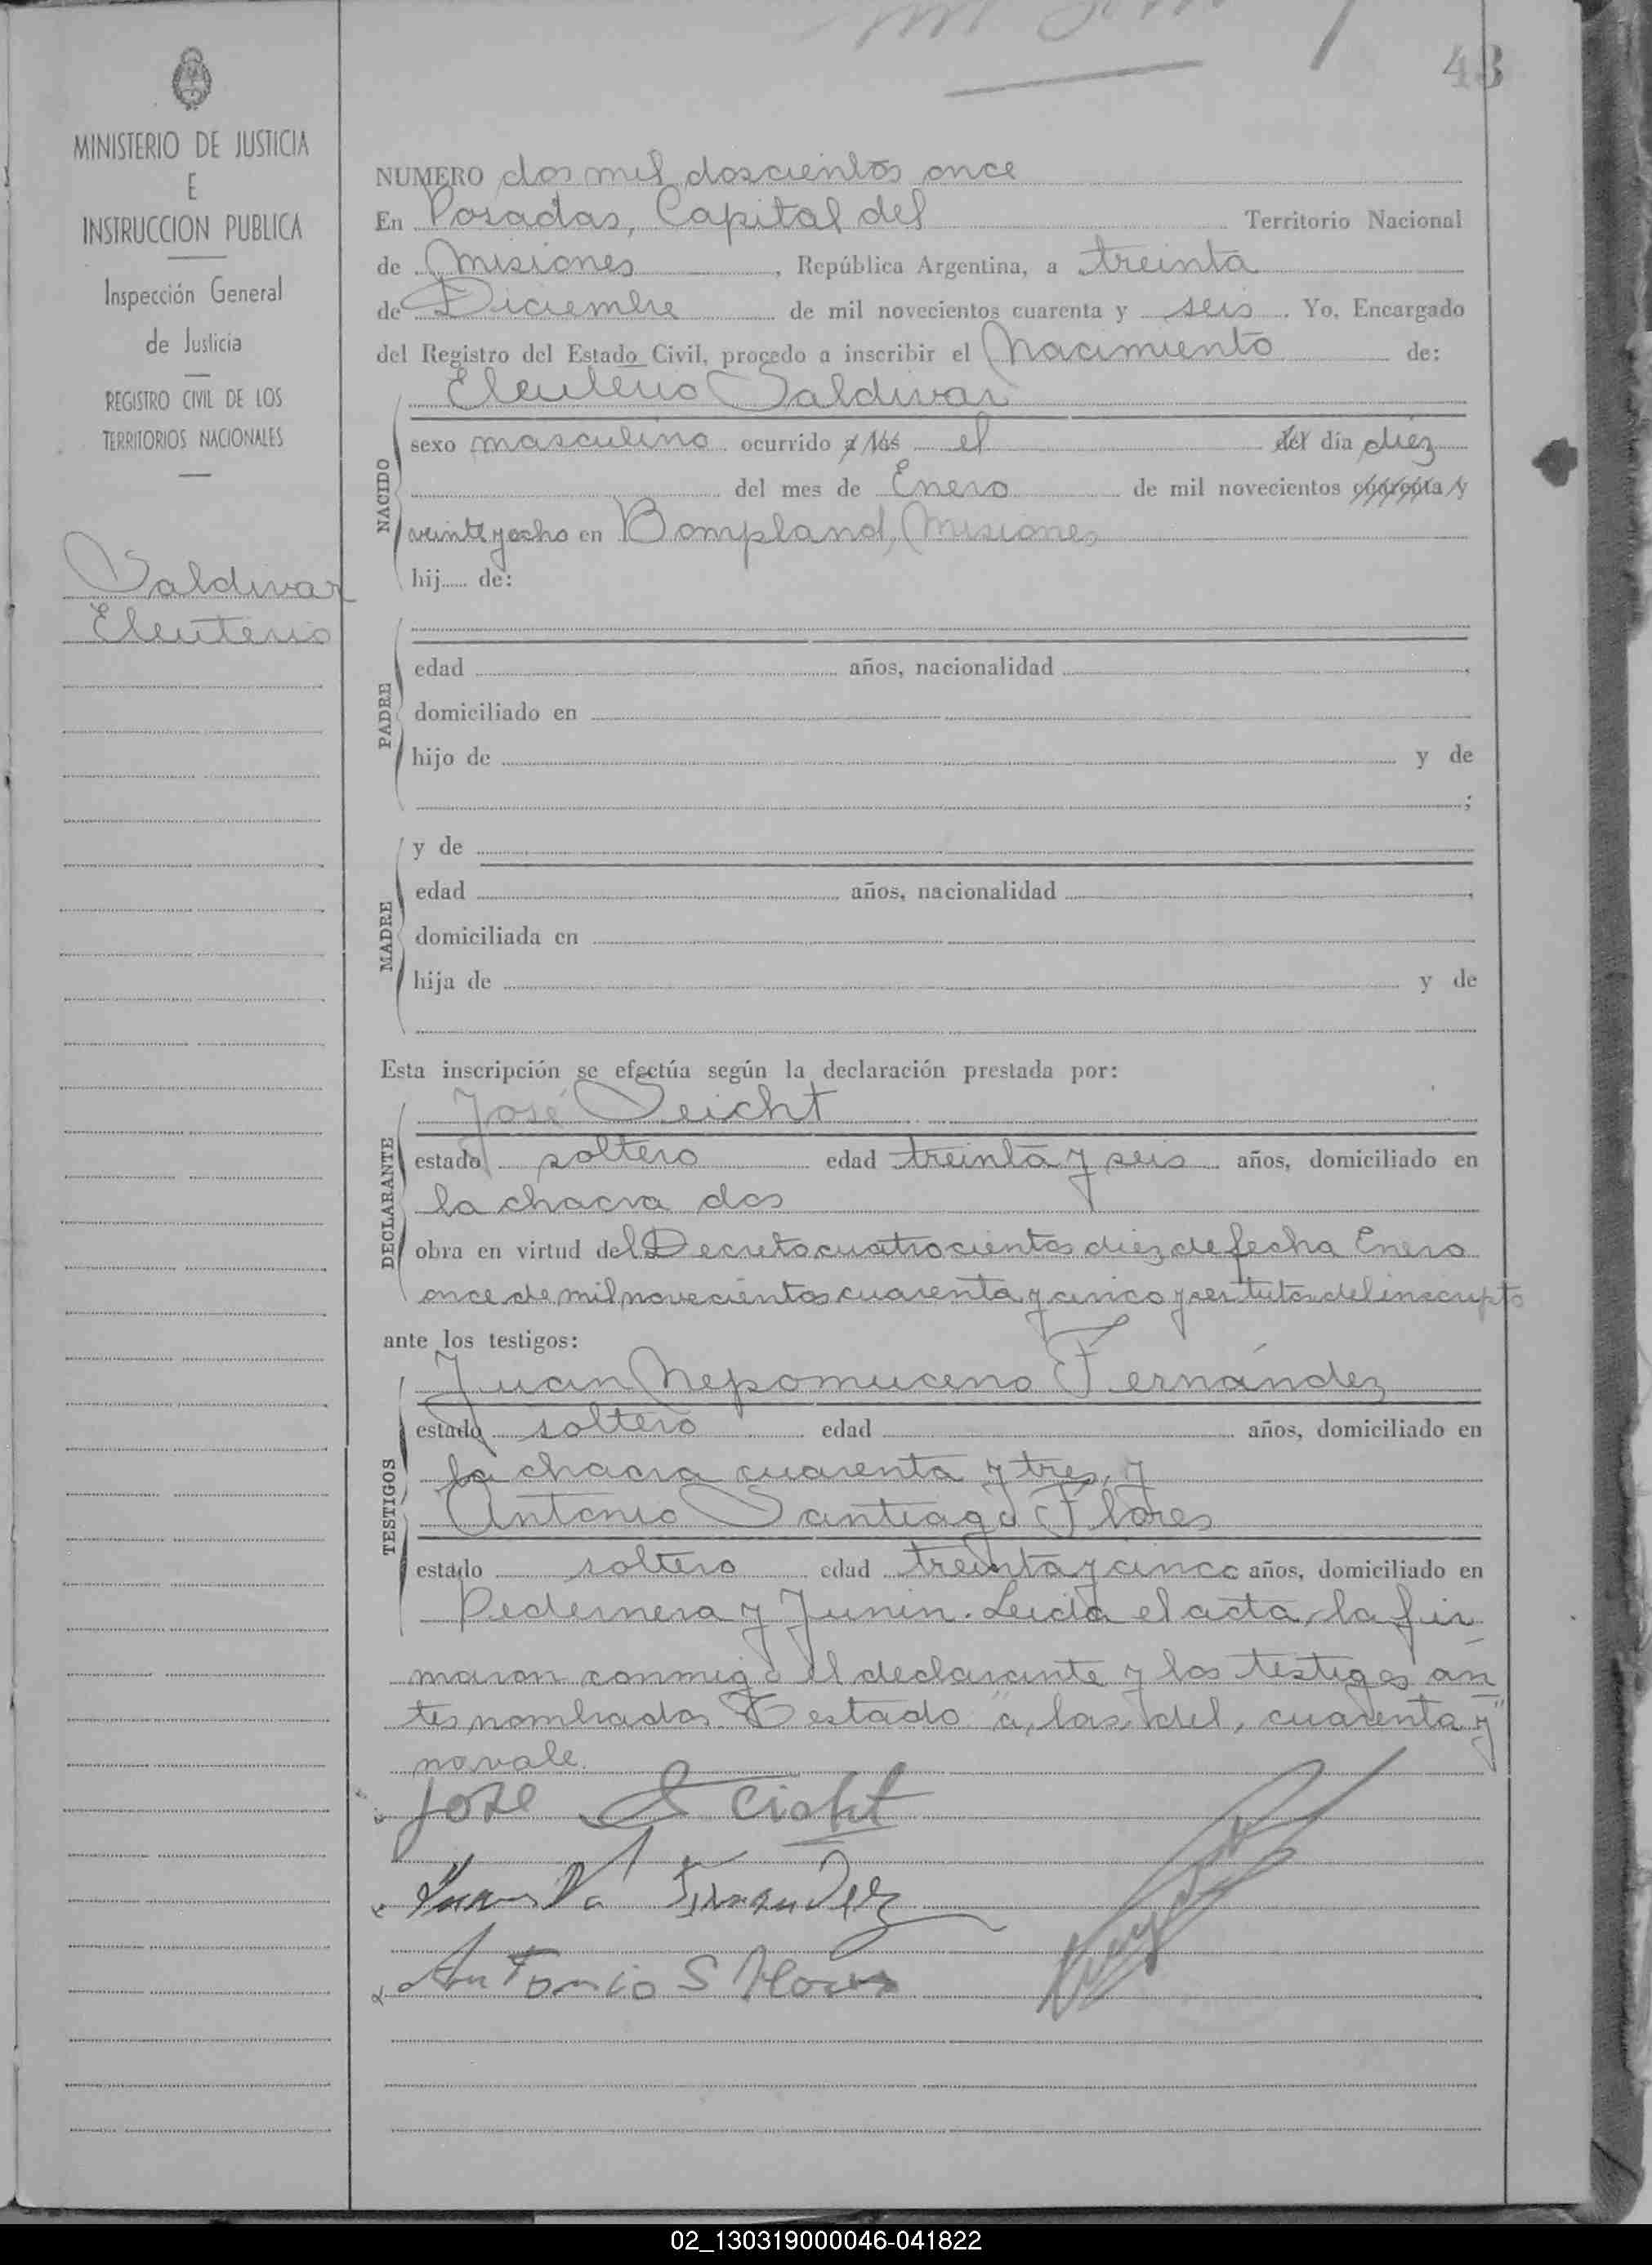 43
MINISTERIO DE JUSTICIA
E
INSTRUCCION PUBLICA
Inspección General
de Justicia
REGISTRO CIVIL DE LOS
TERRITORIOS NACIONALES
Valdivar
Eleuterio
NUMERO dos mil doscientos once
En Posadas, Capital del Territorio Nacional
de Misiones, República Argentina, a treinta
de Diciembre de mil novecientos cuarenta y seis. Yo, Encargado
del Registro del Estado Civil, procedo a inscribir el Nacimiento de:
Eleuterio Valdivar
NACIDO
sexo masculino ocurrido a las el del día diez
del mes de Enero de mil novecientos cuarenta y
veinte y ocho en Bompland, Misiones
hij..... de:
PADRE
edad años, nacionalidad
domiciliado en
hijo de y de
;
MADRE
y de
edad años, nacionalidad
domiciliada en
hija de y de
Esta inscripción se efectúa según la declaración prestada por:
DECLARANTE
José Seicht
estado soltero edad treinta y seis años, domiciliado en
la chacra dos
obra en virtud del Decreto cuatrocientos diez de fecha Enero
once de mil novecientos cuarenta y cinco y ser tutor del inscripto
ante los testigos:
TESTIGOS
Juan Nepomuceno Fernández
estado soltero edad años, domiciliado en
la chacra cuarenta y tres, y
Antonio Santiago Flores
estado soltero edad treinta y cinco años, domiciliado en
Pedernera y Junin. Leida el acta, la fir
maron conmigo el declarante y los testigos an
tes nombrados. Testado "a, las, del, cuarenta y"
no vale.
Jose Seicht
Juan Na Fernandez
Antonio S Flores
02_130319000046-041822